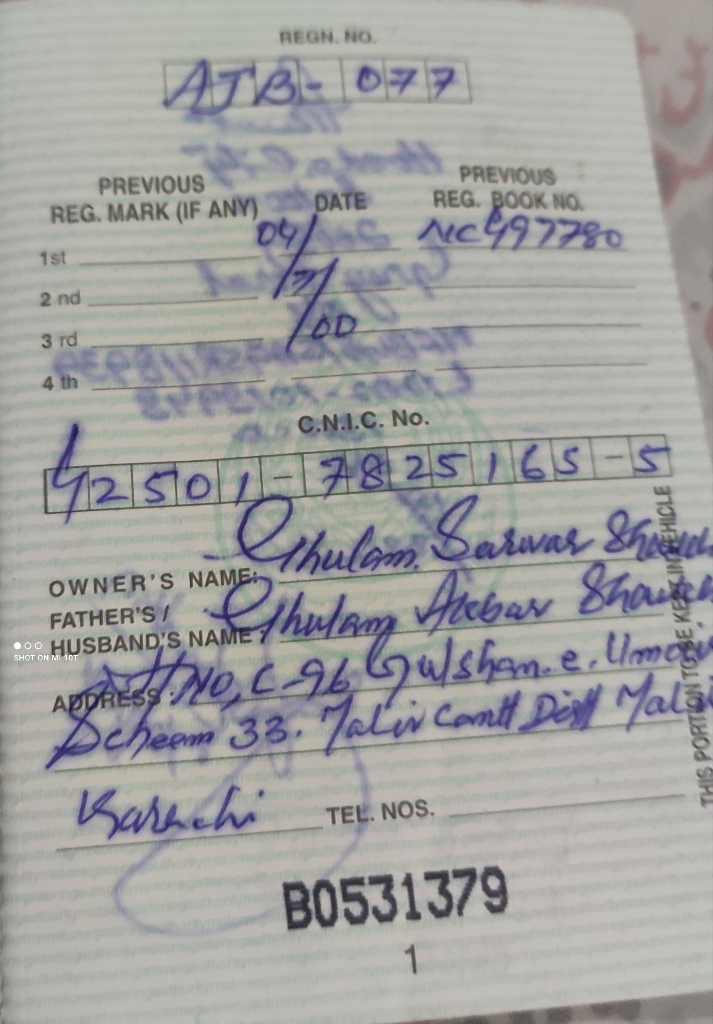 REGN. NO.
AJB- 077
PREVIOUS REG. MARK (IF ANY) DATE PREVIOUS REG. BOOK NO.
1st 04/ NC497780
2 nd /7/
3 rd /00
4 th
C.N.I.C. No.
42501-7825165-5
OWNER'S NAME: Ghulam Sarwar
FATHER'S / HUSBAND'S NAME: Ghulam Akbar
ADDRESS: H NO, C-96 Gulshan.e.
Scheem 33. Malir Cantt Distt
Karachi TEL. NOS.
THIS PORTION TO BE KEPT IN VEHICLE
B0531379
1
SHOT ON MI 10T